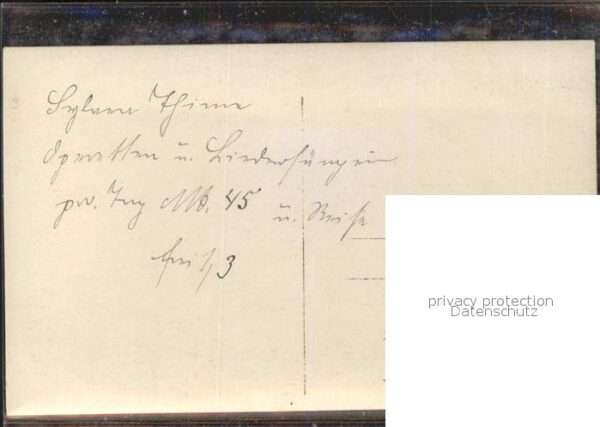 Sylvia Thime
Operetten u. Liedersängerin
pr. Tag Mk. 45 u. Reise
frei 3
privacy protection
Datenschutz